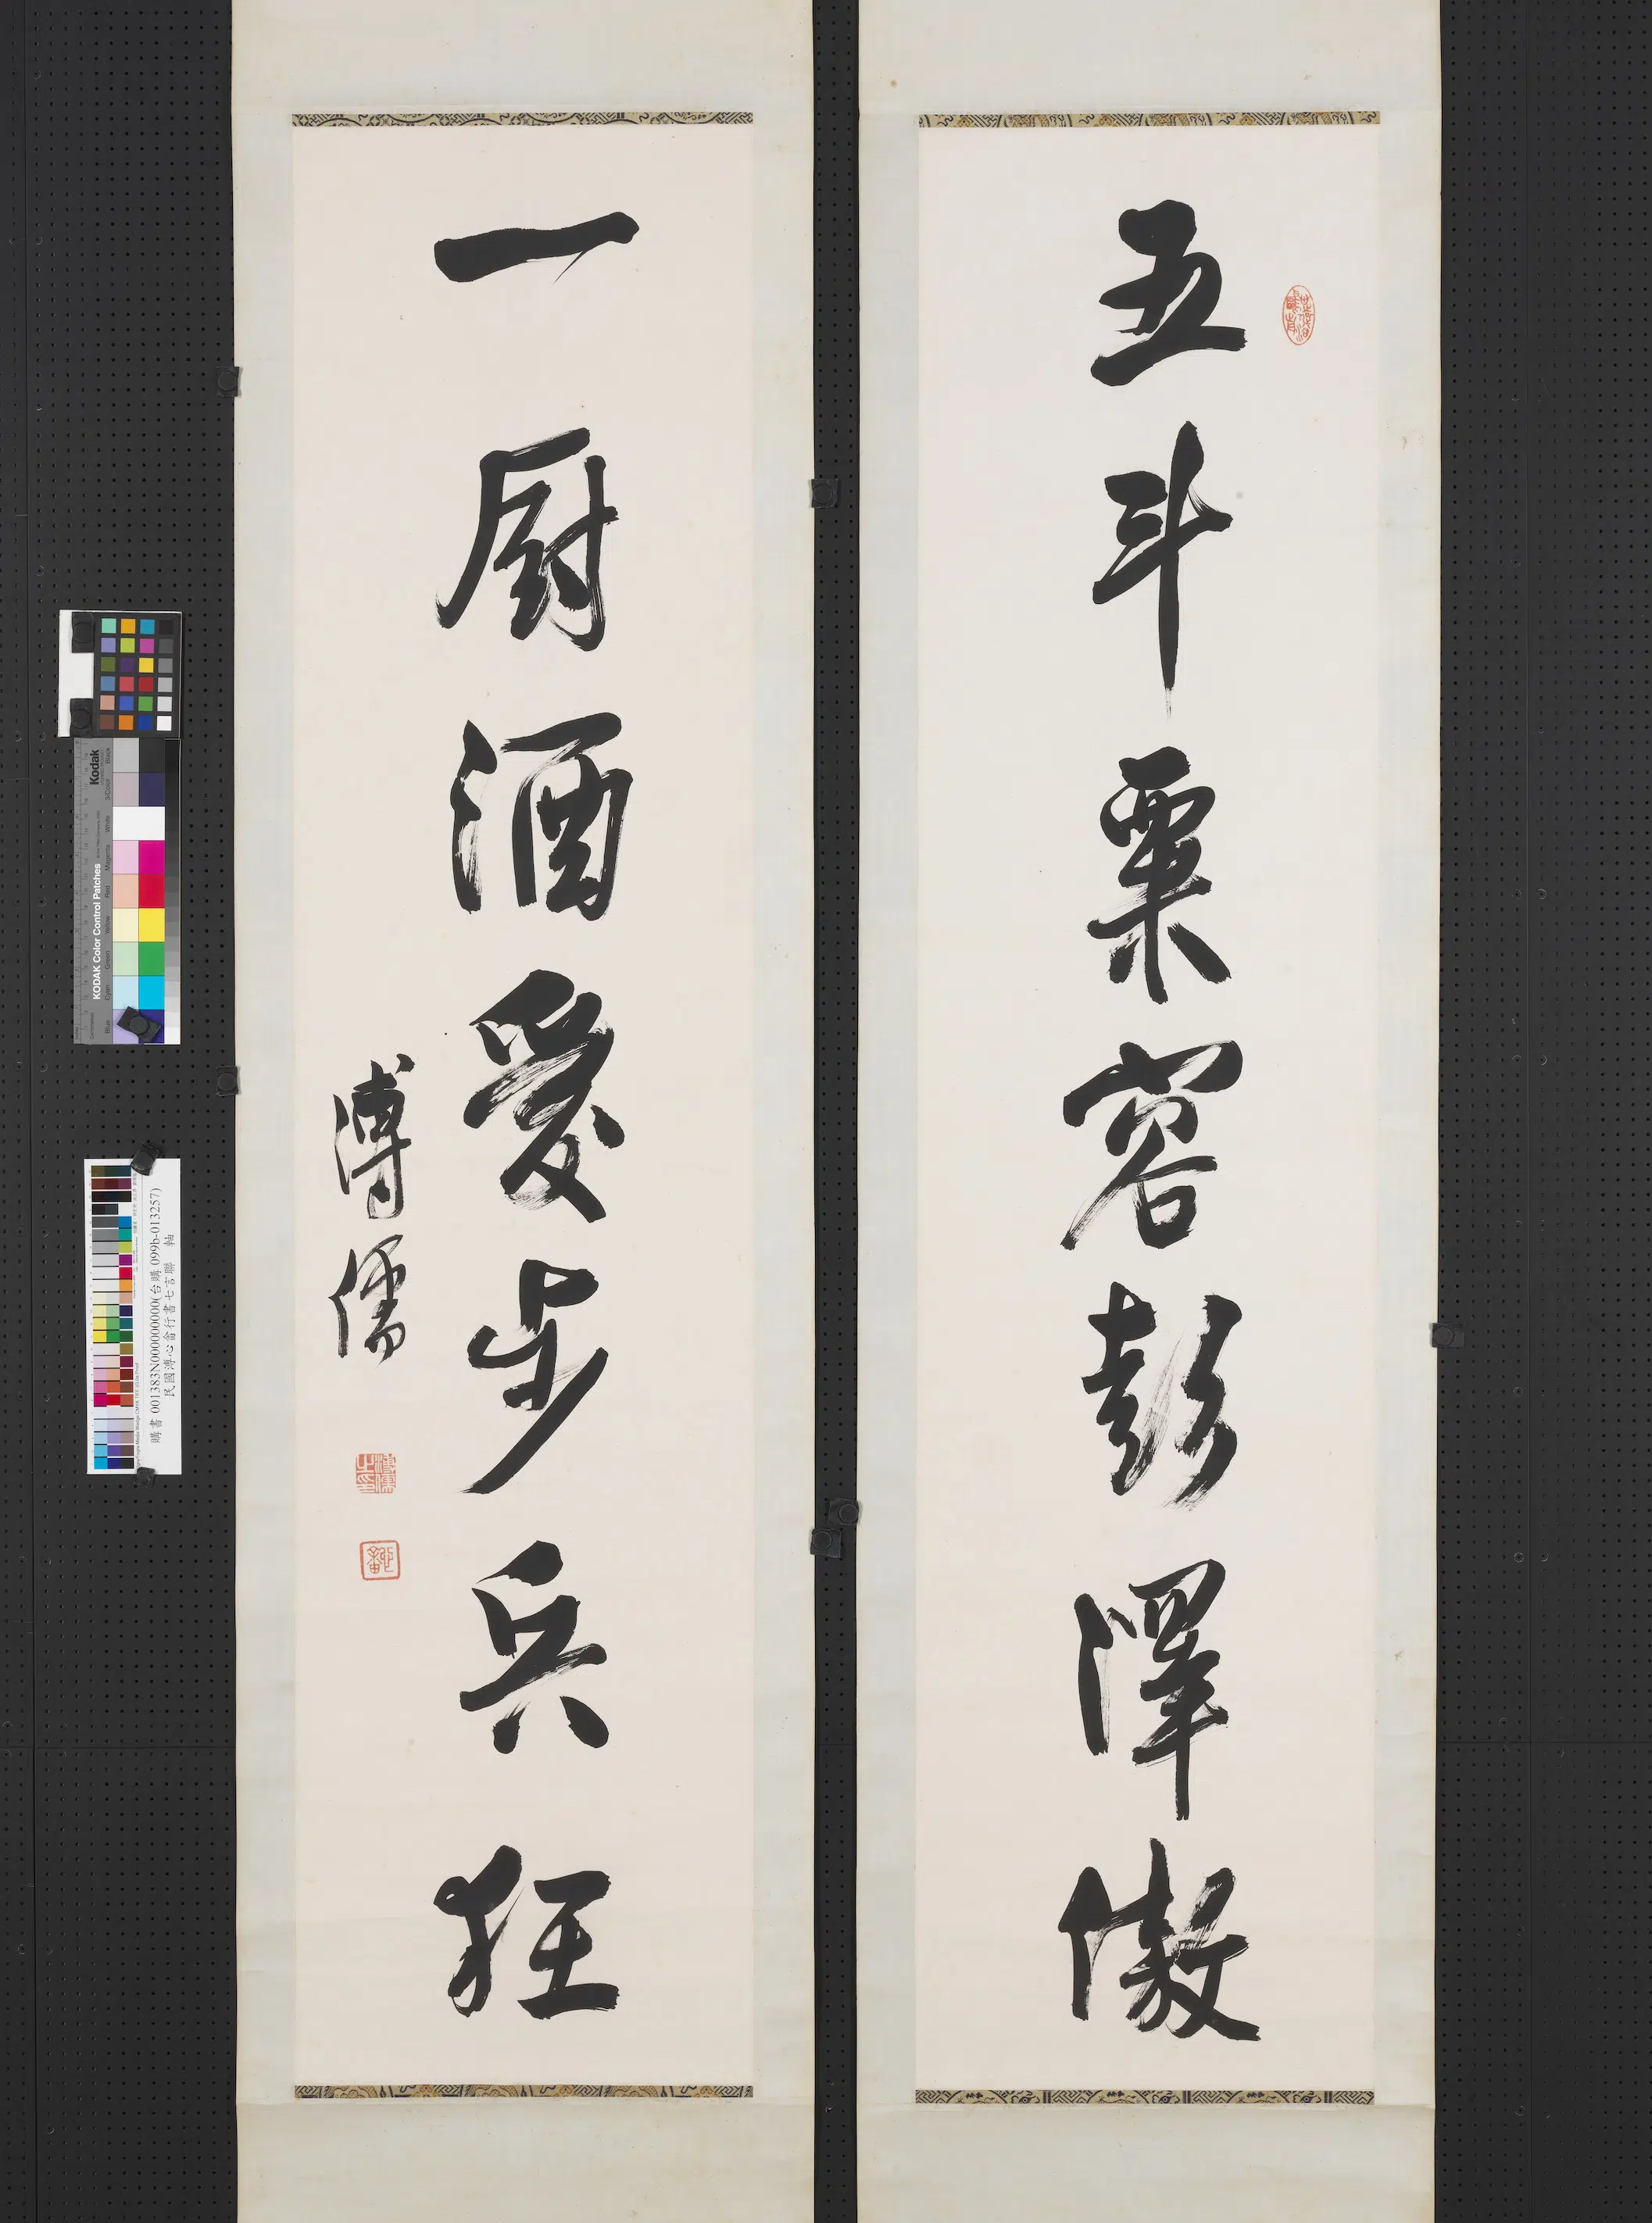 五斗粟容彭澤傲
一厨酒愛步兵狂
溥儒
溥儒之印
KODAK Color Control Patches
Kodak
Blue Cyan Green Yellow Red Magenta White 3/Color Black
購書 001383N000000000(台購 099b-013257)
民國溥心畬行書七言聯 軸